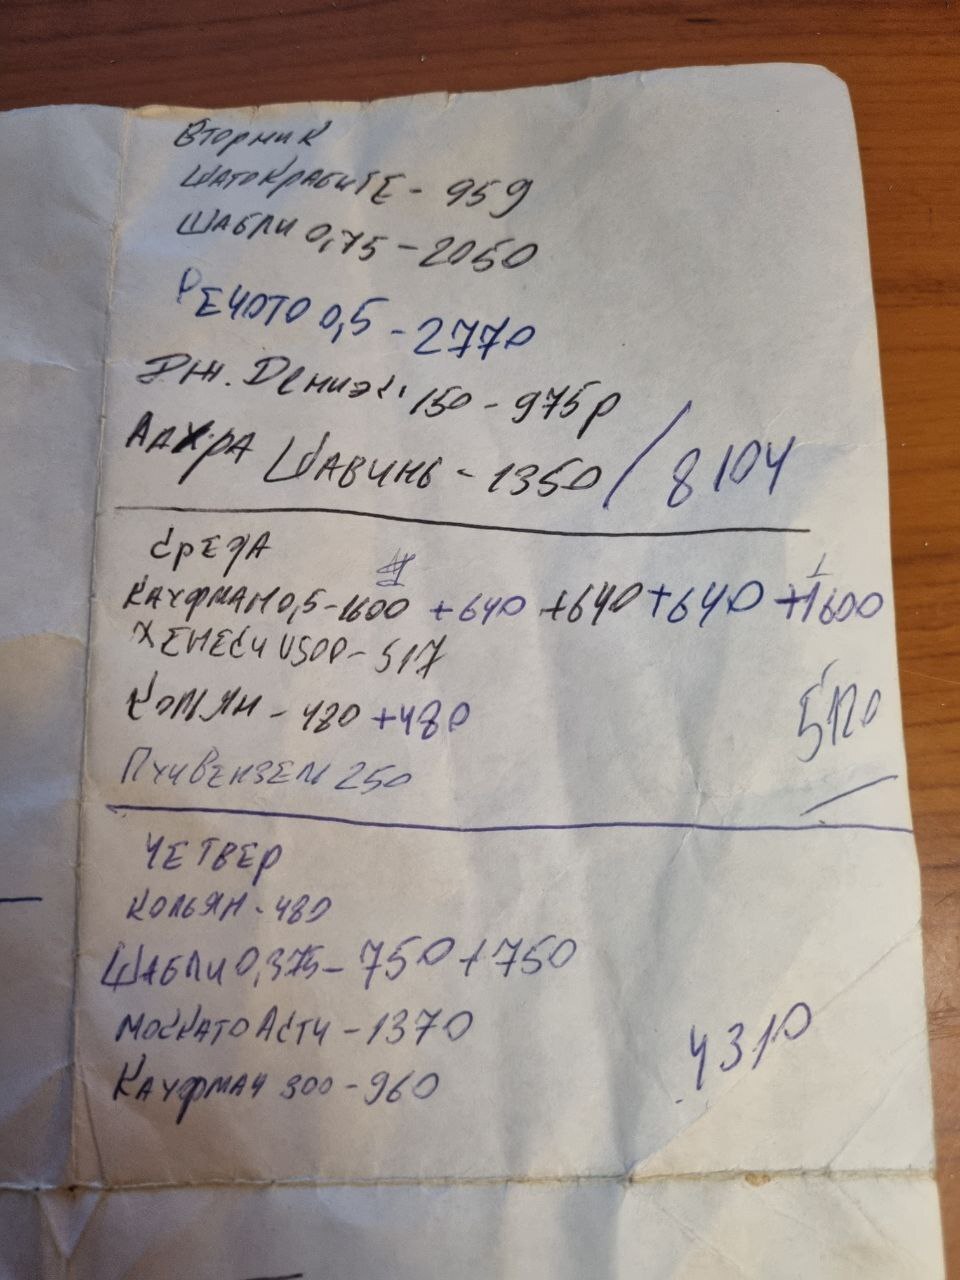 Вторник
Шатокрабитє - 959
Шабли 0,75 - 2050
Речото 0,5 - 2770
Дж. Дениэс 150 - 975р
Шавинь - 1350 / 8104
Среда
Кауфман 0,5 - 1600 +640 +640 +640 +1600
Хенеси VSOP - 517
Кольян - 480 +480
5120
250
Четвер
Кольян - 480
Шабли 0,375 - 750 + 750
Москато Асти - 1370
4310
Кауфман 300 - 960